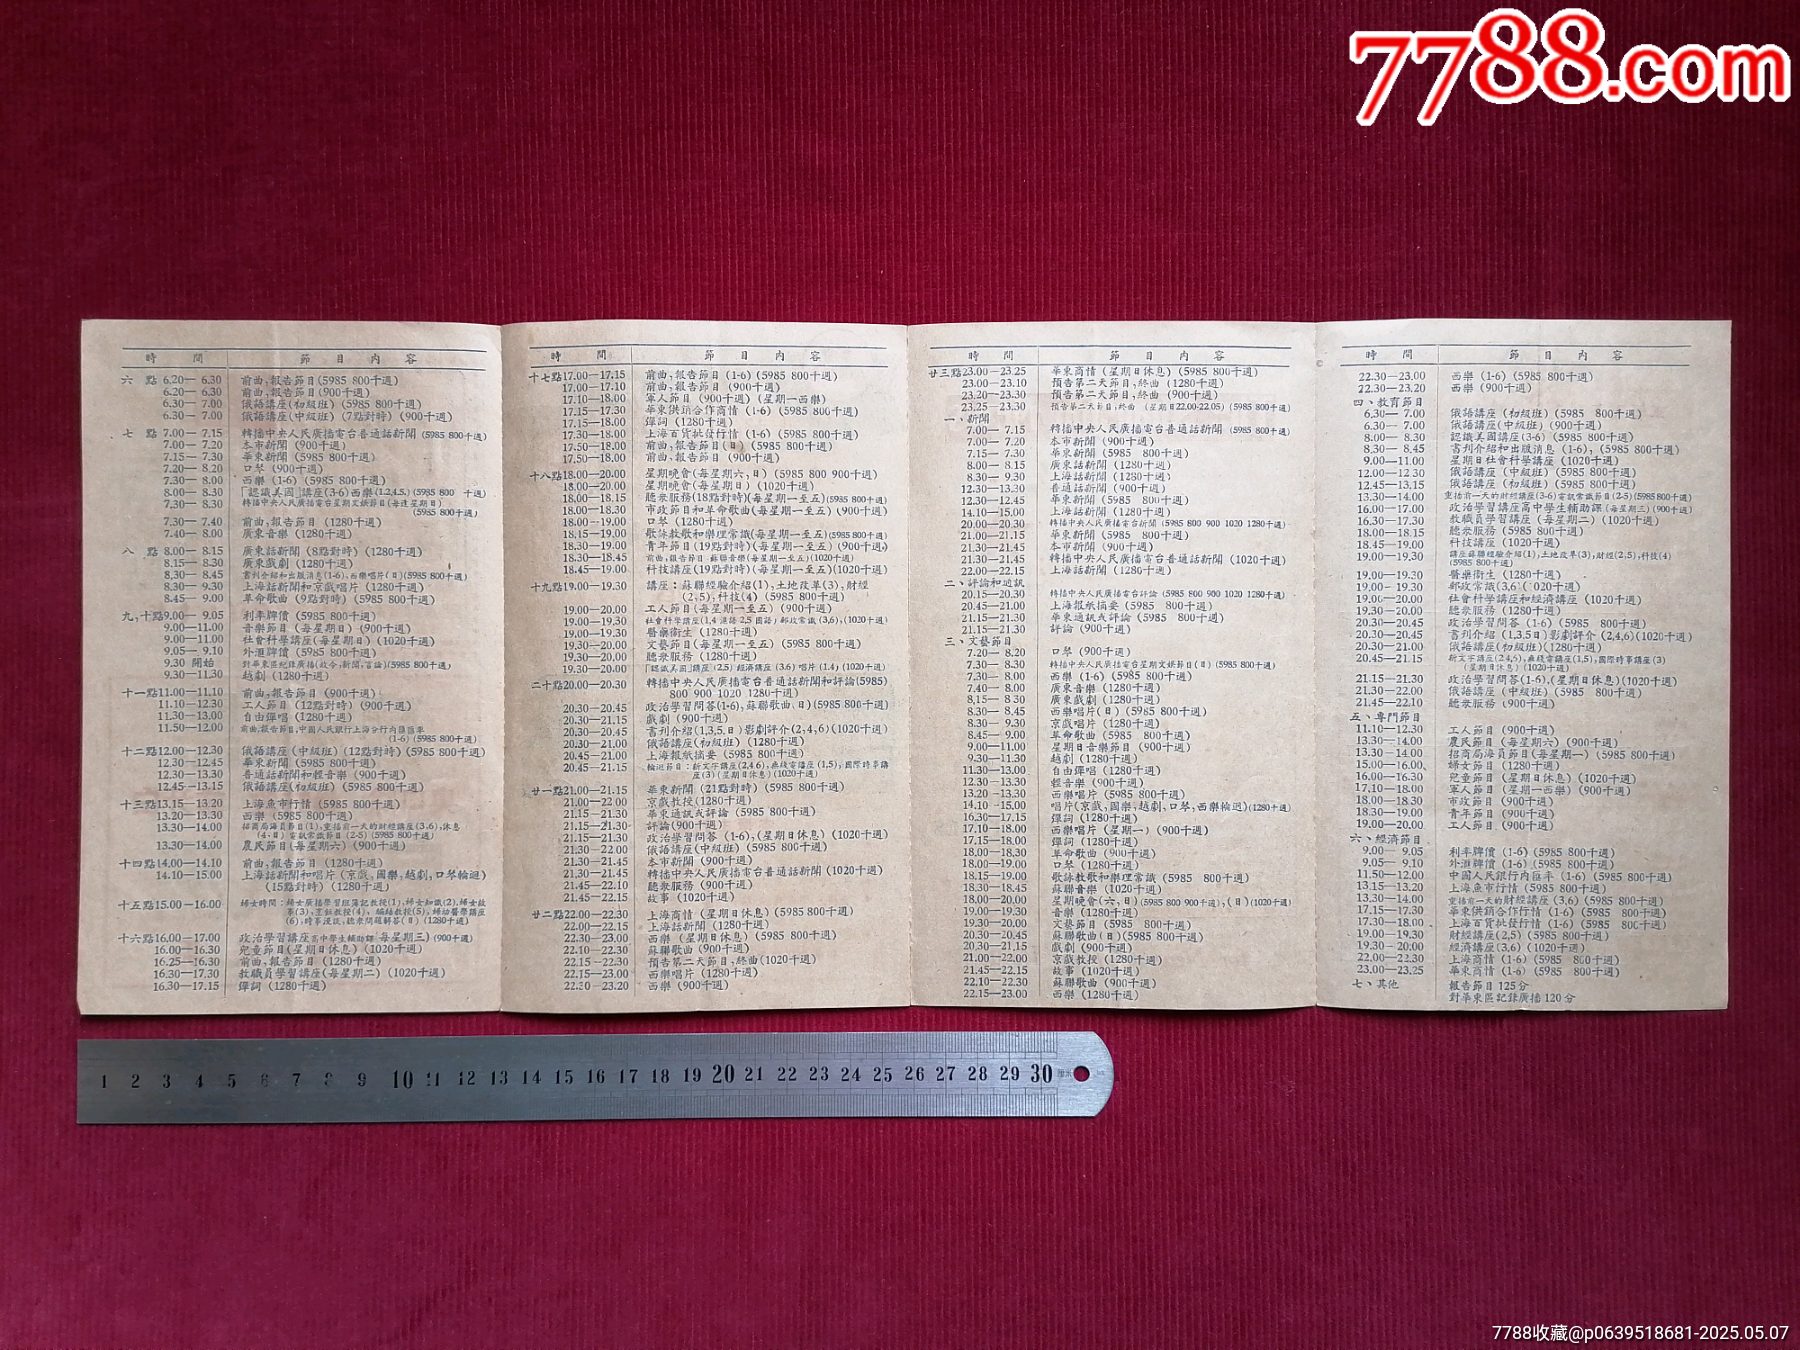 7788.com
時 間 節 目 內 容
六 點 6.20— 6.30 前曲,報告節目(1-6)(5985 800千週)
6.20— 6.30 前曲,報告節目(900千週)
6.30— 7.00 俄語講座(初級班)(5985 800千週)
6.30— 7.00 俄語講座(中級班)(7點對時)(900千週)
七 點 7.00— 7.15 轉播中央人民廣播電台普通話新聞(5985 800千週)
7.00— 7.20 本市新聞(900千週)
7.15— 7.30 華東新聞(5985 800千週)
7.20— 8.20 口琴(900千週)
7.30— 8.00 西樂(1-6)(5985 800千週)
8.00— 8.30 「認識美國」講座(3-6)西樂(1.2.4.5.)(5985 800 千週)
7.30— 8.30 轉播中央人民廣播電台星期文娛節目(每逢星期日)
(5985 800千週)
7.30— 7.40 前曲,報告節目(1280千週)
7.40— 8.00 廣東音樂(1280千週)
八 點 8.00— 8.15 廣東話新聞(8點對時)(1280千週)
8.15— 8.30 廣東戲劇(1280千週)
8.30— 8.45 書刊介紹和出版消息(1-6),西樂唱片(日)(5985 800千週)
8.30— 9.30 上海話新聞和京戲唱片(1280千週)
8.45— 9.00 革命歌曲(9點對時)(5985 800千週)
九,十點9.00— 9.05 利率牌價(5985 800千週)
9.00—11.00 音樂節目(每星期日)(900千週)
9.00—11.00 社會科學講座(每星期日)(1020千週)
9.05— 9.10 外滙牌價(5985 800千週)
9.30 開始 對華東區紀錄廣播(政令,新聞,言論)(5985 800千週)
9.30—11.30 越劇(1280千週)
十一點11.00—11.10 前曲,報告節目(900千週)
11.10—12.30 工人節目(12點對時)(900千週)
11.30—13.00 自由彈唱(1280千週)
11.50—12.00 前曲,報告節目,中國人民銀行上海分行內匯匯率
(1-6)(5985 800千週)
十二點12.00—12.30 俄語講座(中級班)(12點對時)(5985 800千週)
12.30—12.45 華東新聞(5985 800千週)
12.30—13.30 普通話新聞和輕音樂(900千週)
12.45—13.15 俄語講座(初級班)(5985 800千週)
十三點13.15—13.20 上海魚市行情(5985 800千週)
13.20—13.30 西樂(5985 800千週)
13.30—14.00 招商局海員節目(1),重播前一天的財經講座(3,6),休息
(4,日)電氣常識節目(2-5)(5985 800千週)
13.30—14.00 農民節目(每星期六)(900千週)
十四點14.00—14.10 前曲,報告節目(1280千週)
14.10—15.00 上海話新聞和唱片(京戲,國樂,越劇,口琴輪迴)
(15點對時)(1280千週)
十五點15.00—16.00 婦女時間:婦女廣播學習班簿記教授(1),婦女知識(2),婦女故
事(3),烹飪教授(4),編結教授(5),婦幼醫學講座
(6),時事漫談,聽衆問題解答(日)(1280千週)
十六點16.00—17.00 政治學習講座高中學生輔助課(每星期三)(900千週)
16.00—16.30 兒童節目(星期日休息)(1020千週)
16.25—16.30 前曲,報告節目(1280千週)
16.30—17.30 教職員學習講座(每星期二)(1020千週)
16.30—17.15 彈詞(1280千週)
時 間 節 目 內 容
十七點17.00—17.15 前曲,報告節目(1-6)(5985 800千週)
17.00—17.10 前曲,報告節目(900千週)
17.10—18.00 軍人節目(900千週)(星期一西樂)
17.15—17.30 華東供銷合作商情(1-6)(5985 800千週)
17.15—18.00 彈詞(1280千週)
17.30—18.00 上海百貨批發行情(1-6)(5985 800千週)
17.50—18.00 前曲,報告節目(日)(5985 800千週)
17.50—18.00 前曲,報告節目(900千週)
十八點18.00—20.00 星期晚會(每星期六,日)(5985 800 900千週)
18.00—20.00 星期晚會(每星期日)(1020千週)
18.00—18.15 聽衆服務(18點對時)(每星期一至五)(5985 800千週)
18.00—18.30 市政節目和革命歌曲(每星期一至五)(900千週)
18.00—19.00 口琴(1280千週)
18.15—19.00 歌詠教歌和樂理常識(每星期一至五)(5985 800千週)
18.30—19.00 青年節目(19點對時)(每星期一至五)(900千週)
18.30—18.45 前曲,報告節目,蘇聯音樂(每星期一至五)(1020千週)
18.45—19.00 科技講座(19點對時)(每星期一至五)(1020千週)
十九點19.00—19.30 講座:蘇聯經驗介紹(1),土地改革(3),財經
(2,5),科技(4)(5985 800千週)
19.00—20.00 工人節目(每星期一至五)(900千週)
19.00—19.30 社會科學講座(1,4 滬語 2,5 國語)郵政常識(3,6),(1020千週)
19.00—19.30 醫藥衛生(1280千週)
19.30—20.00 文藝節目(每星期一至五)(5985 800千週)
19.30—20.00 聽衆服務(1280千週)
19.30—20.00 「認識美國」講座(2.5)經濟講座(3.6)唱片(1.4)(1020千週)
二十點20.00—20.30 轉播中央人民廣播電台普通話新聞和評論(5985)
800 900 1020 1280千週)
20.30—20.45 政治學習問答(1-6),蘇聯歌曲(日)(5985 800千週)
20.30—21.15 戲劇(900千週)
20.30—20.45 書刊介紹(1,3,5,日)影劇評介(2,4,6)(1020千週)
20.30—21.00 俄語講座(初級班)(1280千週)
20.45—21.00 上海報紙摘要(5985 800千週)
20.45—21.15 輪迴節目:新文字講座(2,4,6),無綫電講座(1,5),國際時事講
座(3)(星期日休息)(1020千週)
廿一點21.00—21.15 華東新聞(21點對時)(5985 800千週)
21.00—22.00 京戲教授(1280千週)
21.15—21.30 華東通訊或評論(5985 800千週)
21.15—21.30 評論(900千週)
21.15—21.30 政治學習問答(1-6),(星期日休息)(1020千週)
21.30—22.00 俄語講座(中級班)(5985 800千週)
21.30—21.45 本市新聞(900千週)
21.30—21.45 轉播中央人民廣播電台普通話新聞(1020千週)
21.45—22.10 聽衆服務(900千週)
21.45—22.15 故事(1020千週)
廿二點22.00—22.30 上海商情(星期日休息)(5985 800千週)
22.00—22.15 上海話新聞(1280千週)
22.30—23.00 西樂(星期日休息)(5985 800千週)
22.10—22.30 蘇聯歌曲(900千週)
22.15—22.30 預告第二天節目,終曲(1020千週)
22.15—23.00 西樂唱片(1280千週)
22.30—23.20 西樂(900千週)
時 間 節 目 內 容
廿三點23.00—23.25 華東商情(星期日休息)(5985 800千週)
23.00—23.10 預告第二天節目,終曲(1280千週)
23.20—23.30 預告第二天節目,終曲(900千週)
23.25—23.30 預告第二天節目,終曲(星期日22.00-22.05)(5985 800千週)
一、新聞
7.00— 7.15 轉播中央人民廣播電台普通話新聞(5985 800千週)
7.00— 7.20 本市新聞(900千週)
7.15— 7.30 華東新聞(5985 800千週)
8.00— 8.15 廣東話新聞(1280千週)
8.30— 9.30 上海話新聞(1280千週)
12.30—13.30 普通話新聞(900千週)
12.30—12.45 華東新聞(5985 800千週)
14.10—15.00 上海話新聞(1280千週)
20.00—20.30 轉播中央人民廣播電台新聞(5985 800 900 1020 1280千週)
21.00—21.15 華東新聞(5985 800千週)
21.30—21.45 本市新聞(900千週)
21.30—21.45 轉播中央人民廣播電台普通話新聞(1020千週)
22.00—22.15 上海話新聞(1280千週)
二、評論和通訊
20.15—20.30 轉播中央人民廣播電台評論(5985 800 900 1020 1280千週)
20.45—21.00 上海報紙摘要(5985 800千週)
21.15—21.30 華東通訊或評論(5985 800千週)
21.15—21.30 評論(900千週)
三、文藝節目
7.20— 8.20 口琴(900千週)
7.30— 8.30 轉播中央人民廣播電台星期文娛節目(日)(5985 800千週)
7.30— 8.00 西樂(1-6)(5985 800千週)
7.40— 8.00 廣東音樂(1280千週)
8.15— 8.30 廣東戲劇(1280千週)
8.30— 8.45 西樂唱片(日)(5985 800千週)
8.30— 9.30 京戲唱片(1280千週)
8.45— 9.00 革命歌曲(5985 800千週)
9.00—11.00 星期日音樂節目(900千週)
9.30—11.30 越劇(1280千週)
11.30—13.00 自由彈唱(1280千週)
12.30—13.30 輕音樂(900千週)
13.20—13.30 西樂唱片(5985 800千週)
14.10—15.00 唱片(京戲,國樂,越劇,口琴,西樂輪迴)(1280千週)
16.30—17.15 彈詞(1280千週)
17.10—18.00 西樂唱片(星期一)(900千週)
17.15—18.00 彈詞(1280千週)
18.00—18.30 革命歌曲(900千週)
18.00—19.00 口琴(1280千週)
18.15—19.00 歌詠教歌和樂理常識(5985 800千週)
18.30—18.45 蘇聯音樂(1020千週)
18.00—20.00 星期晚會(六,日)(5985 800 900千週),(日)(1020千週)
19.00—19.30 音樂(1280千週)
19.30—20.00 文藝節目(5985 800千週)
20.30—20.45 蘇聯歌曲(日)(5985 800千週)
20.30—21.15 戲劇(900千週)
21.00—22.00 京戲教授(1280千週)
21.45—22.15 故事(1020千週)
22.10—22.30 蘇聯歌曲(900千週)
22.15—23.00 西樂(1280千週)
時 間 節 目 內 容
22.30—23.00 西樂(1-6)(5985 800千週)
22.30—23.20 西樂(900千週)
四、教育節目
6.30— 7.00 俄語講座(初級班)(5985 800千週)
6.30— 7.00 俄語講座(中級班)(900千週)
8.00— 8.30 認識美國講座(3-6)(5985 800千週)
8.30— 8.45 書刊介紹和出版消息(1-6),(5985 800千週)
9.00—11.00 星期日社會科學講座(1020千週)
12.00—12.30 俄語講座(中級班)(5985 800千週)
12.45—13.15 俄語講座(初級班)(5985 800千週)
13.30—14.00 重播前一天的財經講座(3-6)電氣常識節目(2-5)(5985 800千週)
16.00—17.00 政治學習講座高中學生輔助課(每星期三)(900千週)
16.30—17.30 教職員學習講座(每星期二)(1020千週)
18.00—18.15 聽衆服務(5985 800千週)
18.45—19.00 科技講座(1020千週)
19.00—19.30 講座蘇聯經驗介紹(1),土地改革(3),財經(2,5),科技(4)
(5985 800千週)
19.00—19.30 醫藥衛生(1280千週)
19.00—19.30 郵政常識(3,6)(1020千週)
19.30—20.00 社會科學講座和經濟講座(1020千週)
19.30—20.00 聽衆服務(1280千週)
20.30—20.45 政治學習問答(1-6)(5985 800千週)
20.30—20.45 書刊介紹(1,3,5日)影劇評介(2,4,6)(1020千週)
20.30—21.00 俄語講座(初級班)(1280千週)
20.45—21.15 新文字講座(2,4,6),無綫電講座(1,5),國際時事講座(3)
(星期日休息)(1020千週)
21.15—21.30 政治學習問答(1-6),(星期日休息)(1020千週)
21.30—22.00 俄語講座(中級班)(5985 800千週)
21.45—22.10 聽衆服務(900千週)
五、專門節目
11.10—12.30 工人節目(900千週)
13.30—14.00 農民節目(每星期六)(900千週)
13.30—14.00 招商局海員節目(每星期一)(5985 800千週)
15.00—16.00 婦女節目(1280千週)
16.00—16.30 兒童節目(星期日休息)(1020千週)
17.10—18.00 軍人節目(星期一西樂)(900千週)
18.00—18.30 市政節目(900千週)
18.30—19.00 青年節目(900千週)
19.00—20.00 工人節目(900千週)
六、經濟節目
9.00— 9.05 利率牌價(1-6)(5985 800千週)
9.05— 9.10 外滙牌價(1-6)(5985 800千週)
11.50—12.00 中國人民銀行內匯率(1-6)(5985 800千週)
13.15—13.20 上海魚市行情(5985 800千週)
13.30—14.00 重播前一天的財經講座(3,6)(5985 800千週)
17.15—17.30 華東供銷合作行情(1-6)(5985 800千週)
17.30—18.00 上海百貨批發行情(1-6)(5985 800千週)
19.00—19.30 財經講座(2,5)(5985 800千週)
19.30—20.00 經濟講座(3,6)(1020千週)
22.00—22.30 上海商情(1-6)(5985 800千週)
23.00—23.25 華東商情(1-6)(5985 800千週)
七、其他 報告節目125分
對華東區記錄廣播120分
1 2 3 4 5 6 7 8 9 10 11 12 13 14 15 16 17 18 19 20 21 22 23 24 25 26 27 28 29 30
7788收藏@p0639518681-2025.05.07